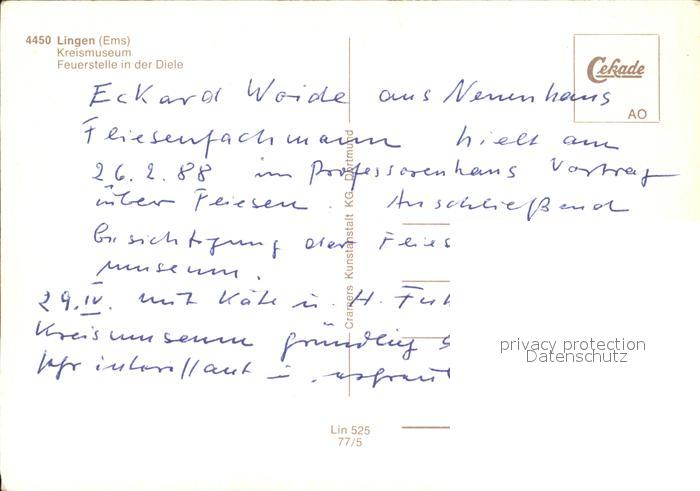 4450 Lingen (Ems)
Kreismuseum
Feuerstelle in der Diele
Cekade
AO
Eckard Woide aus Neuenhaus
Fliesenfachmann hielt am
26.2.88 im Professorenhaus Vortrag
über Fliesen. Anschließend
Besichtigung der Flies
museum.
29.IV. mit Käte u. H. Fuh
Kreismuseum gründlig
sehr interessant u.
Cramers Kunstanstalt KG, Dortmund
privacy protection
Datenschutz
Lin 525
77/5